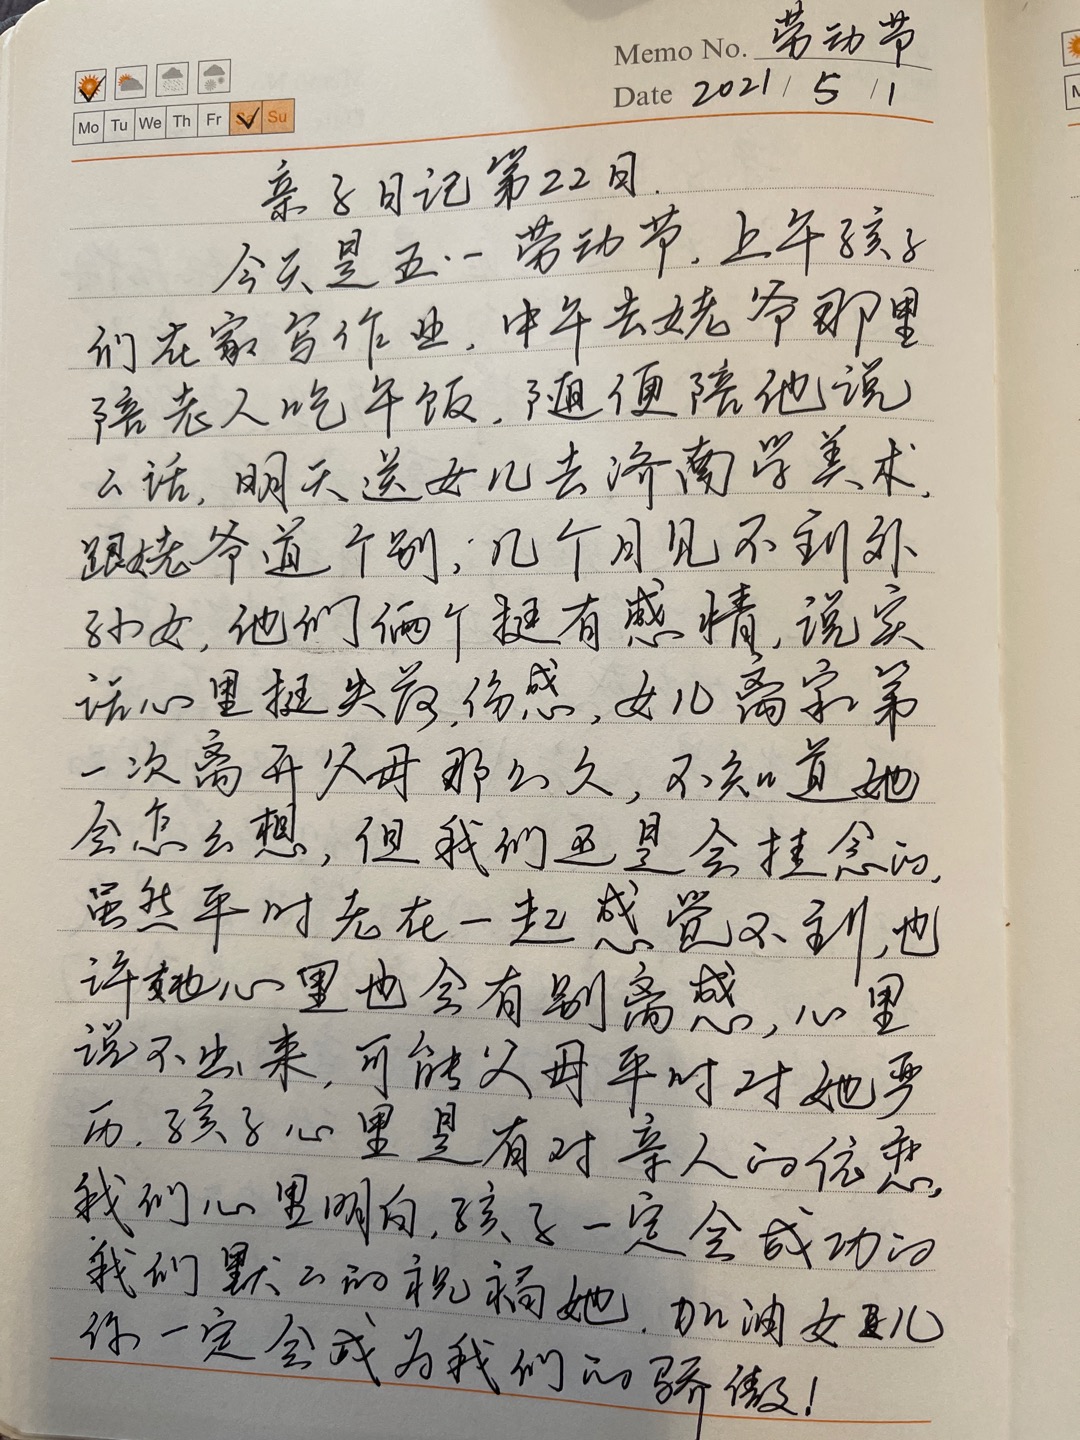 Memo No. 劳动节
Date 2021/5/1
Mo Tu We Th Fr Sa Su
亲子日记第22日.
今天是五·一劳动节.上午孩子
们在家写作业.中午去姥爷那里
陪老人吃午饭.随便陪他说
么话.明天送女儿去济南学美术.
跟姥爷道个别;几个月见不到外
孙女,他们俩个挺有感情,说实
话心里挺失落,伤感,女儿离家第
一次离开父母那么久,不知道她
会怎么想,但我们还是会挂念的,
虽然平时老在一起感觉不到,也
许她心里也会有别离感,心里
说不出来,可能父母平时对她严
厉.孩子心里是有对亲人的依恋,
我们心里明白,孩子一定会成功的
我们默么的祝福她.加油女儿
你一定会成为我们的骄傲!